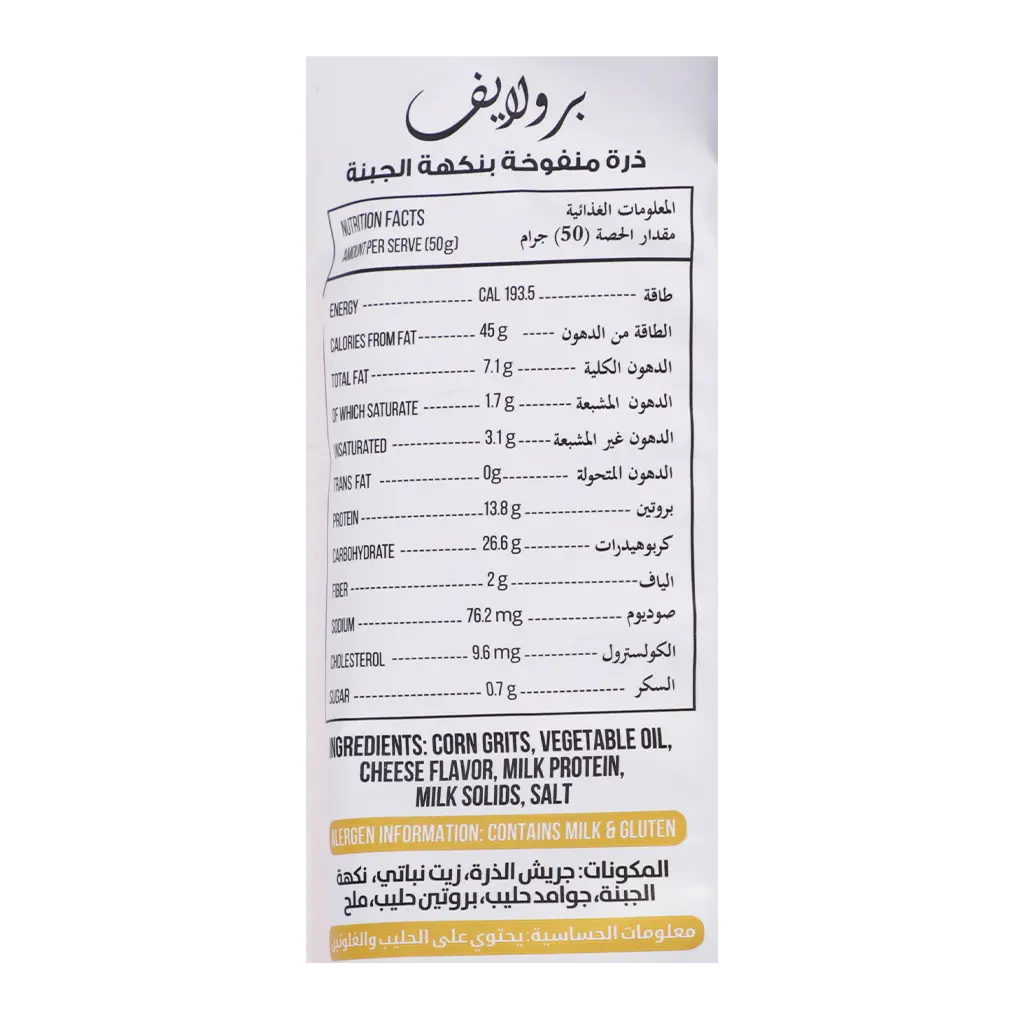 برولايف
ذرة منفوخة بنكهة الجبنة
NUTRITION FACTS المعلومات الغذائية
AMOUNT PER SERVE (50g) مقدار الحصة (50) جرام
ENERGY CAL 193.5 طاقة
CALORIES FROM FAT 45 g الطاقة من الدهون
TOTAL FAT 7.1 g الدهون الكلية
OF WHICH SATURATE 1.7 g الدهون المشبعة
UNSATURATED 3.1 g الدهون غير المشبعة
TRANS FAT 0g الدهون المتحولة
PROTEIN 13.8 g بروتين
CARBOHYDRATE 26.6 g كربوهيدرات
FIBER 2 g الياف
SODIUM 76.2 mg صوديوم
CHOLESTEROL 9.6 mg الكولسترول
SUGAR 0.7 g السكر
INGREDIENTS: CORN GRITS, VEGETABLE OIL,
CHEESE FLAVOR, MILK PROTEIN,
MILK SOLIDS, SALT
ALERGEN INFORMATION: CONTAINS MILK & GLUTEN
المكونات: جريش الذرة، زيت نباتي، نكهة
الجبنة، جوامد حليب، بروتين حليب، ملح
معلومات الحساسية: يحتوي على الحليب والغلوتين